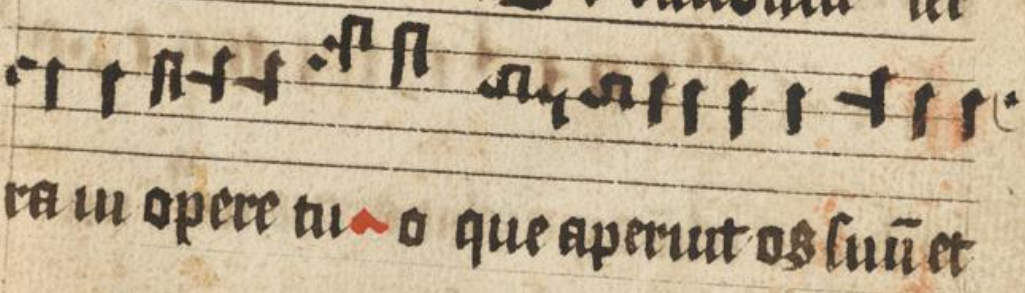 ra in opere tu o que aperuit os suū et